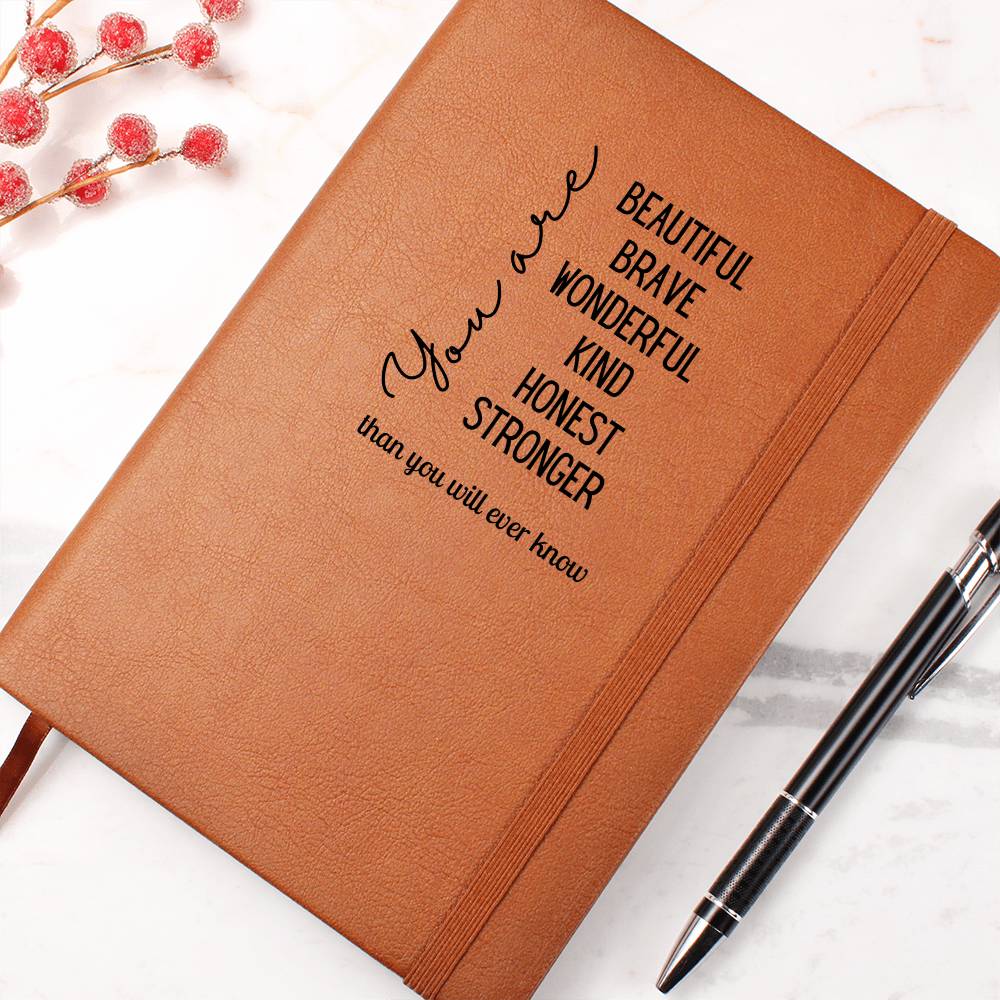 You are
BEAUTIFUL
BRAVE
WONDERFUL
KIND
HONEST
STRONGER
than you will ever know